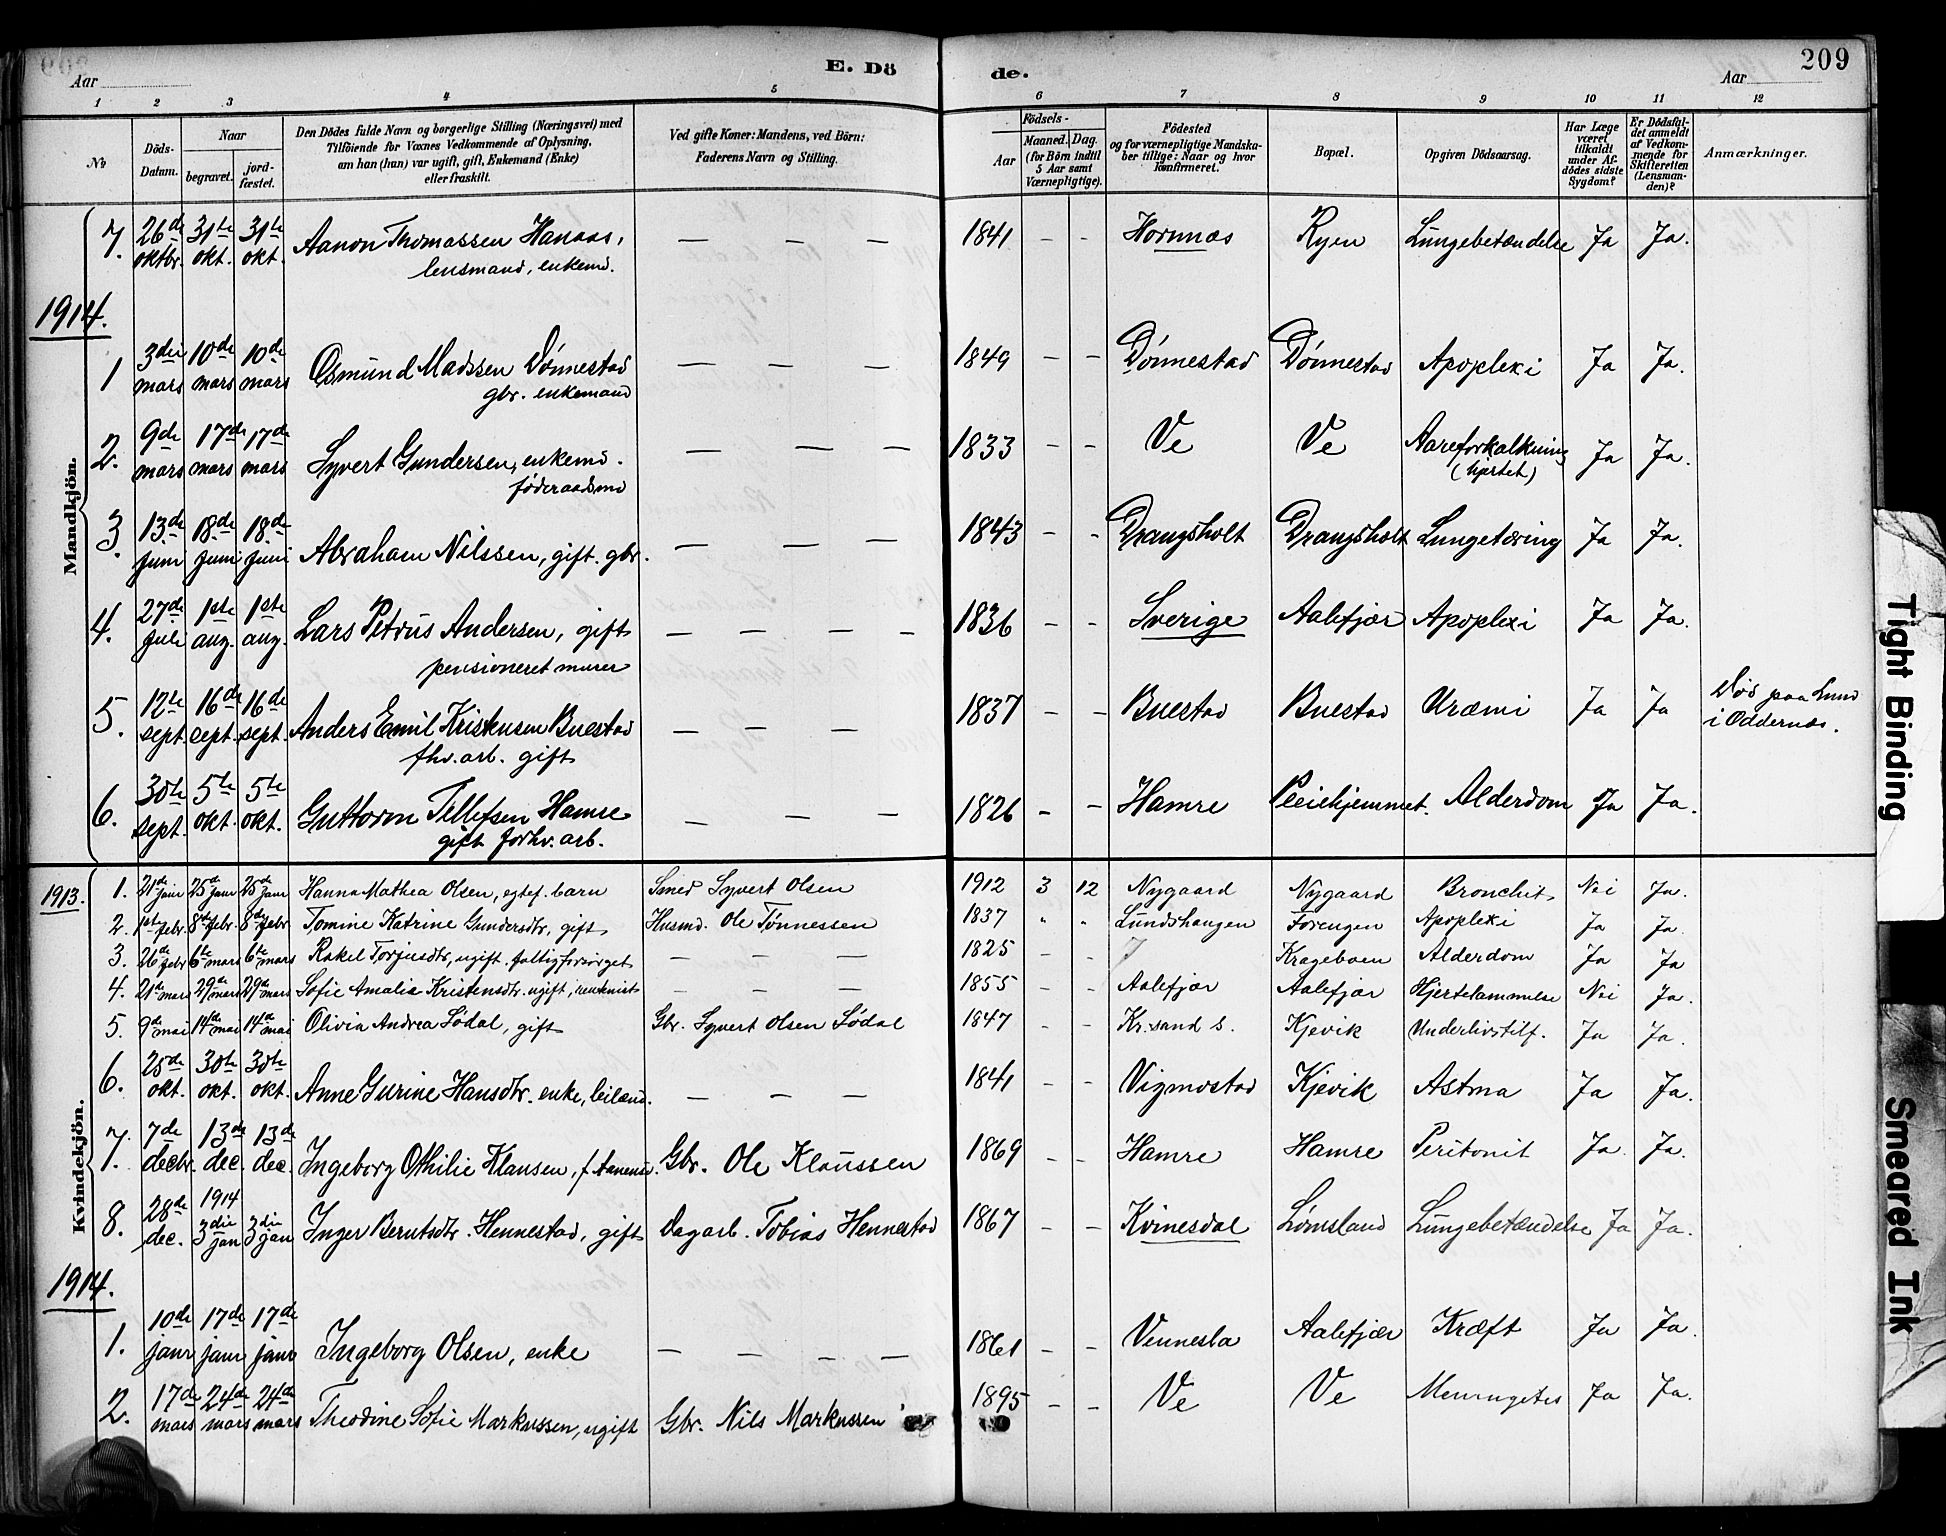 209
Aar
E. Dö de.
Aar
1 2 3 4 5 6 7 8 9 10 11 12
No
Döds-Datum.
Naar
begravet.
jord-fæstet.
Den Dödes fulde Navn og borgerlige Stilling (Næringsvei) med
Tilföiende for Voxnes Vedkommende af Oplysning,
om han (hun) var ugift, gift, Enkemand (Enke)
eller fraskilt.
Ved gifte Koner: Mandens, ved Börn:
Faderens Navn og Stilling.
Födsels-
Aar
Maaned. Dag.
(for Börn indtil
5 Aar samt
Værnepligtige).
Födested
og for værnepligtige Mandska-
ber tillige: Naar og hvor
konfirmeret.
Bopæl.
Opgiven Dödsaarsag.
Har Læge
været
tilkaldt
under Af-
dödes sidste
Sygdom?
Er Dödsfal-
det anmeldt
af Vedkom-
mende for
Skifteretten
(Lensman-
den)?
Anmærkninger.
Mandkjön.
7. 26de oktbr. 31te okt. 31te okt. Aanon Thomassen Hanaas, — — — 1841 - - Hornnæs Ryen Lungebetændelse Ja Ja.
lensmand, enkemd.
1914.
1 3die mars 10de mars 10de mars Osmund Madssen Dønnestad — — — 1849 - - Dønnestad Dønnestad Apoplexi Ja Ja.
gbr. enkemand
2. 9de mars 17de mars 17de mars Syvert Gundersen, enkemd. — — — 1833 - - Ve Ve Aareforkalkning Ja Ja.
føderaadsmd (hjertet)
3. 13de juni 18de juni 18de juni Abraham Nilssen, gift. gbr. — — — 1843 - - Drangsholt Drangsholt Lungetæring Ja Ja.
4. 27de juli 1ste aug. 1ste aug. Lars Petrus Andersen, gift — — — — 1836 - - Sverige Aalefjær Apoplexi Ja Ja.
pensioneret murer
5. 12te sept. 16de sept. 16de sept. Anders Emil Kristensen Buestad — — — 1837 - - Buestad Buestad Uræmi Ja Ja Død paa Lund
fhv. arb. gift i Oddernæs.
6. 30te sept. 5te okt. 5te okt. Guttorm Tellefsen Hamre — — — 1826 - - Hamre Pleiehjemmet. Alderdom Ja Ja.
gift forhv. arb.
Kvindekjön.
1913. 1. 21de janr 25de janr 25de janr Hanna Mathea Olsen, egtef. barn Smed Syvert Olsen 1912 3 12 Nygaard Nygaard Bronchit Nei Ja.
2. 1ste febr. 8de febr. 8de febr. Tomine Katrine Gundersdtr, gift Husmd. Ole Tønnessen 1837 " " Lundshaugen Forengen Apoplexi Ja Ja.
3. 26de febr 6te mars 6te mars Rakel Torjusdtr, ugift. fattigforsørget — — — 1825 - - Krageboen Alderdom Ja Ja
4. 21de mars 29de mars 29de mars Sofie Amalia Kristensdtr. ugift, rentenist — — — 1855 - - Aalefjær Aalefjær Hjertelammelse Nei Ja.
5. 9de mai 14de mai 14de mai Olivia Andrea Sødal, gift Gbr. Syvert Olsen Sødal 1847 - - Kr.sand s. Kjevik Underlivstilf. Ja Ja.
6. 25de okt. 30te okt. 30te okt. Anne Gurine Hansdtr. enke, leilænd. — — — 1841 - - Vigmostad Kjevik Astma Ja Ja.
7. 7de decbr. 13de dec. 13de dec. Ingeborg Othilie Klausen, f. Aanens. Gbr. Ole Klaussen 1869 - - Hamre Hamre Peritonit Ja. Ja.
8. 28de dec. 1914 3die jan 3die jan Inger Berntsdtr. Hennestad, gift Dagarb. Tobias Hennestad 1867 - - Kvinesdal Lømsland Lungebetændelse Ja Ja.
1914.
1. 10de janr 17de janr 17de janr Ingeborg Olsen, enke — — — — 1861 - - Vennesla Aalefjær Kræft Ja Ja.
2. 17de mars 24de mars 24de mars Theodine Sofie Markussen, ugift Gbr. Nils Markussen 1895 - - Ve Ve Meningetes Ja Ja.
Tight Binding
Smeared Ink